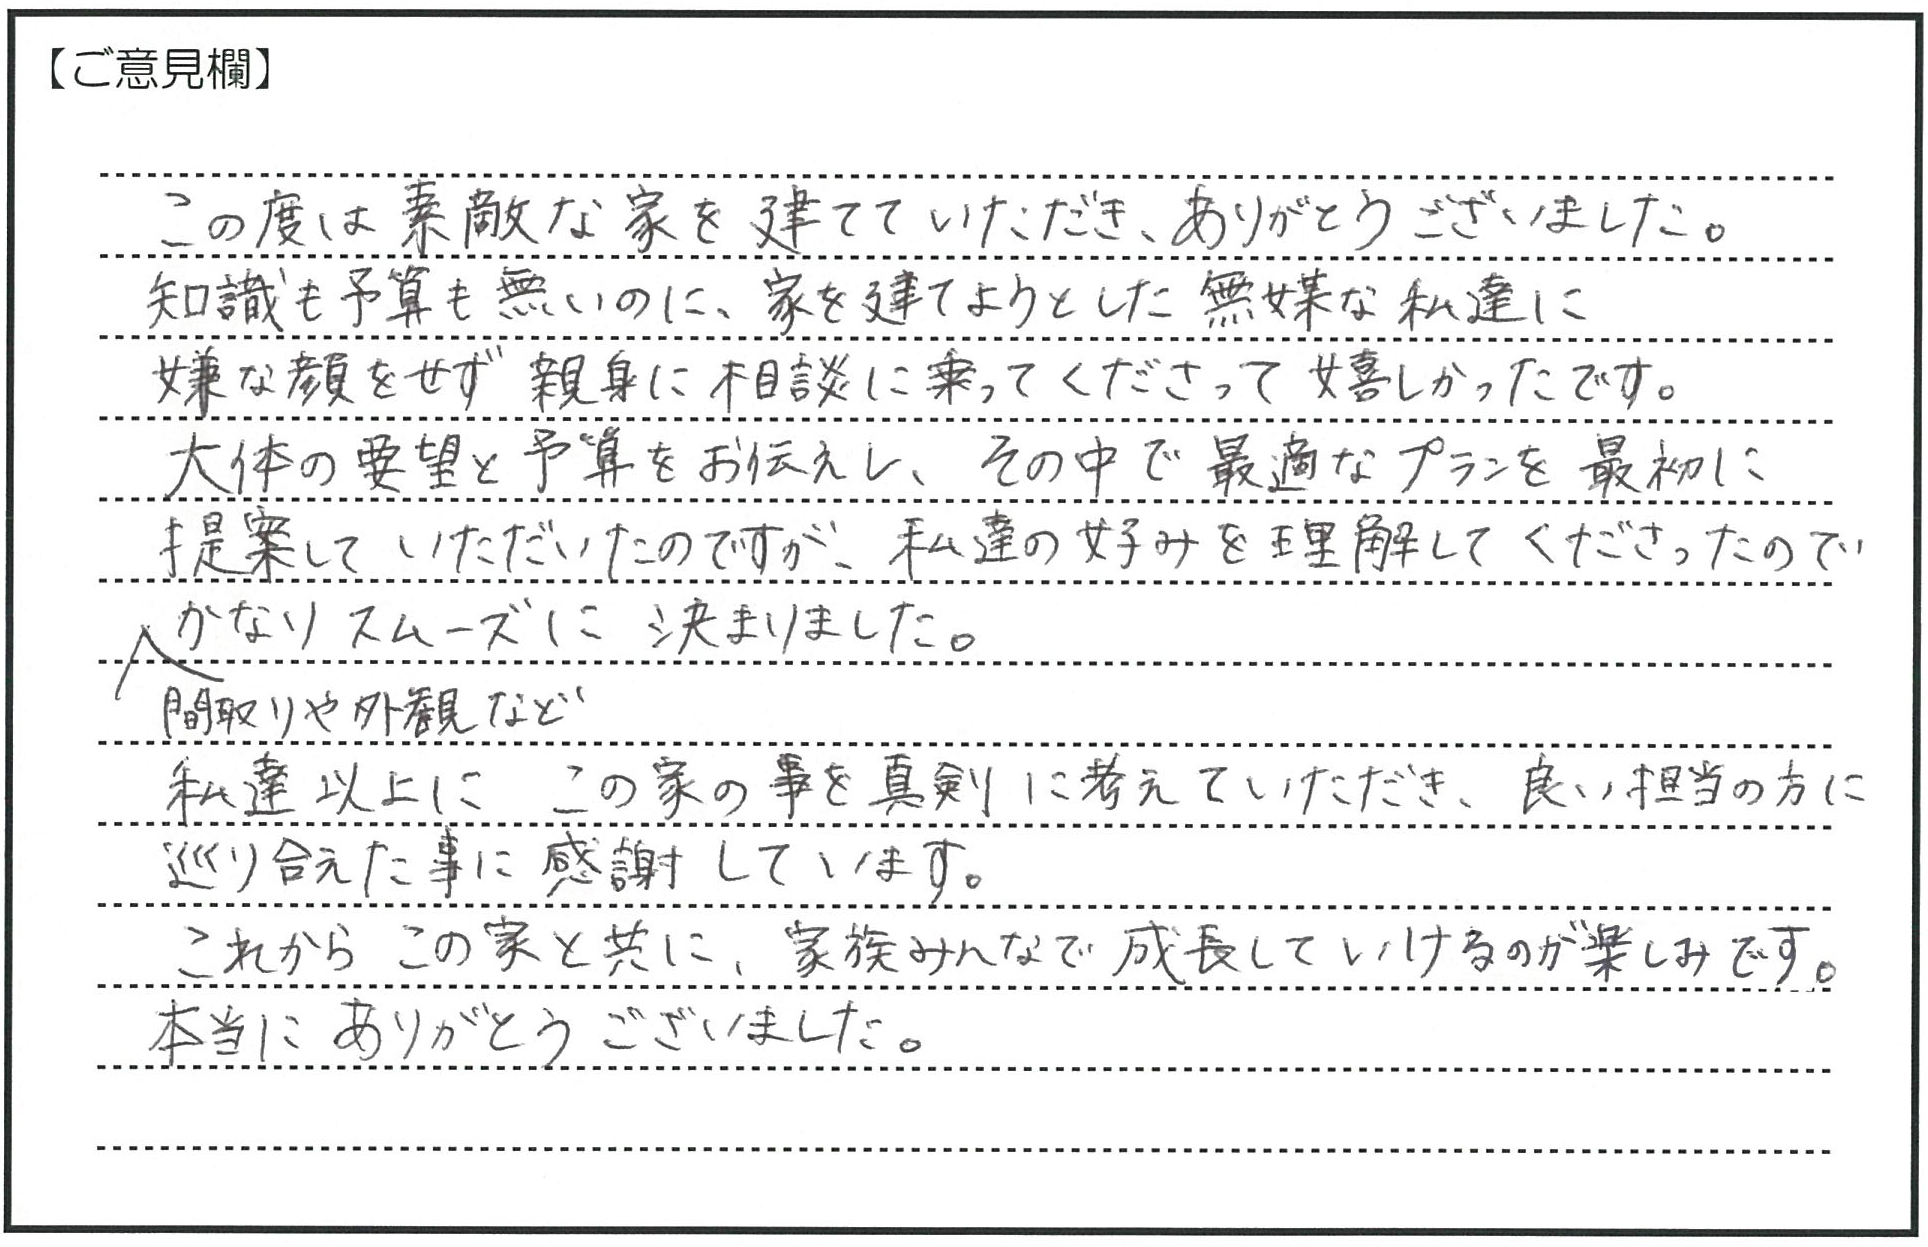 【ご意見欄】
この度は素敵な家を建てていただき、ありがとうございました。
知識も予算も無いのに、家を建てようとした無謀な私達に
嫌な顔をせず親身に相談に乗ってくださって嬉しかったです。
大体の要望と予算をお伝えし、その中で最適なプランを最初に
提案していただいたのですが、私達の好みを理解してくださったので
かなりスムーズに決まりました。
間取りや外観など
私達以上にこの家の事を真剣に考えていただき、良い担当の方に
巡り合えた事に感謝しています。
これからこの家と共に、家族みんなで成長していけるのが楽しみです。
本当にありがとうございました。